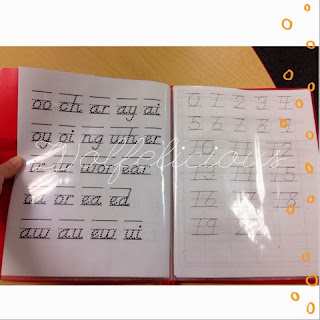 oo ch ar ay ai
oy oi ng wh er
ir ur wor ear
oa or ea ed
aw au ew ui
Wolfelicious
0 1 2 3 4
5 6 7 8 9
10 12
13 14 15
16 18
19